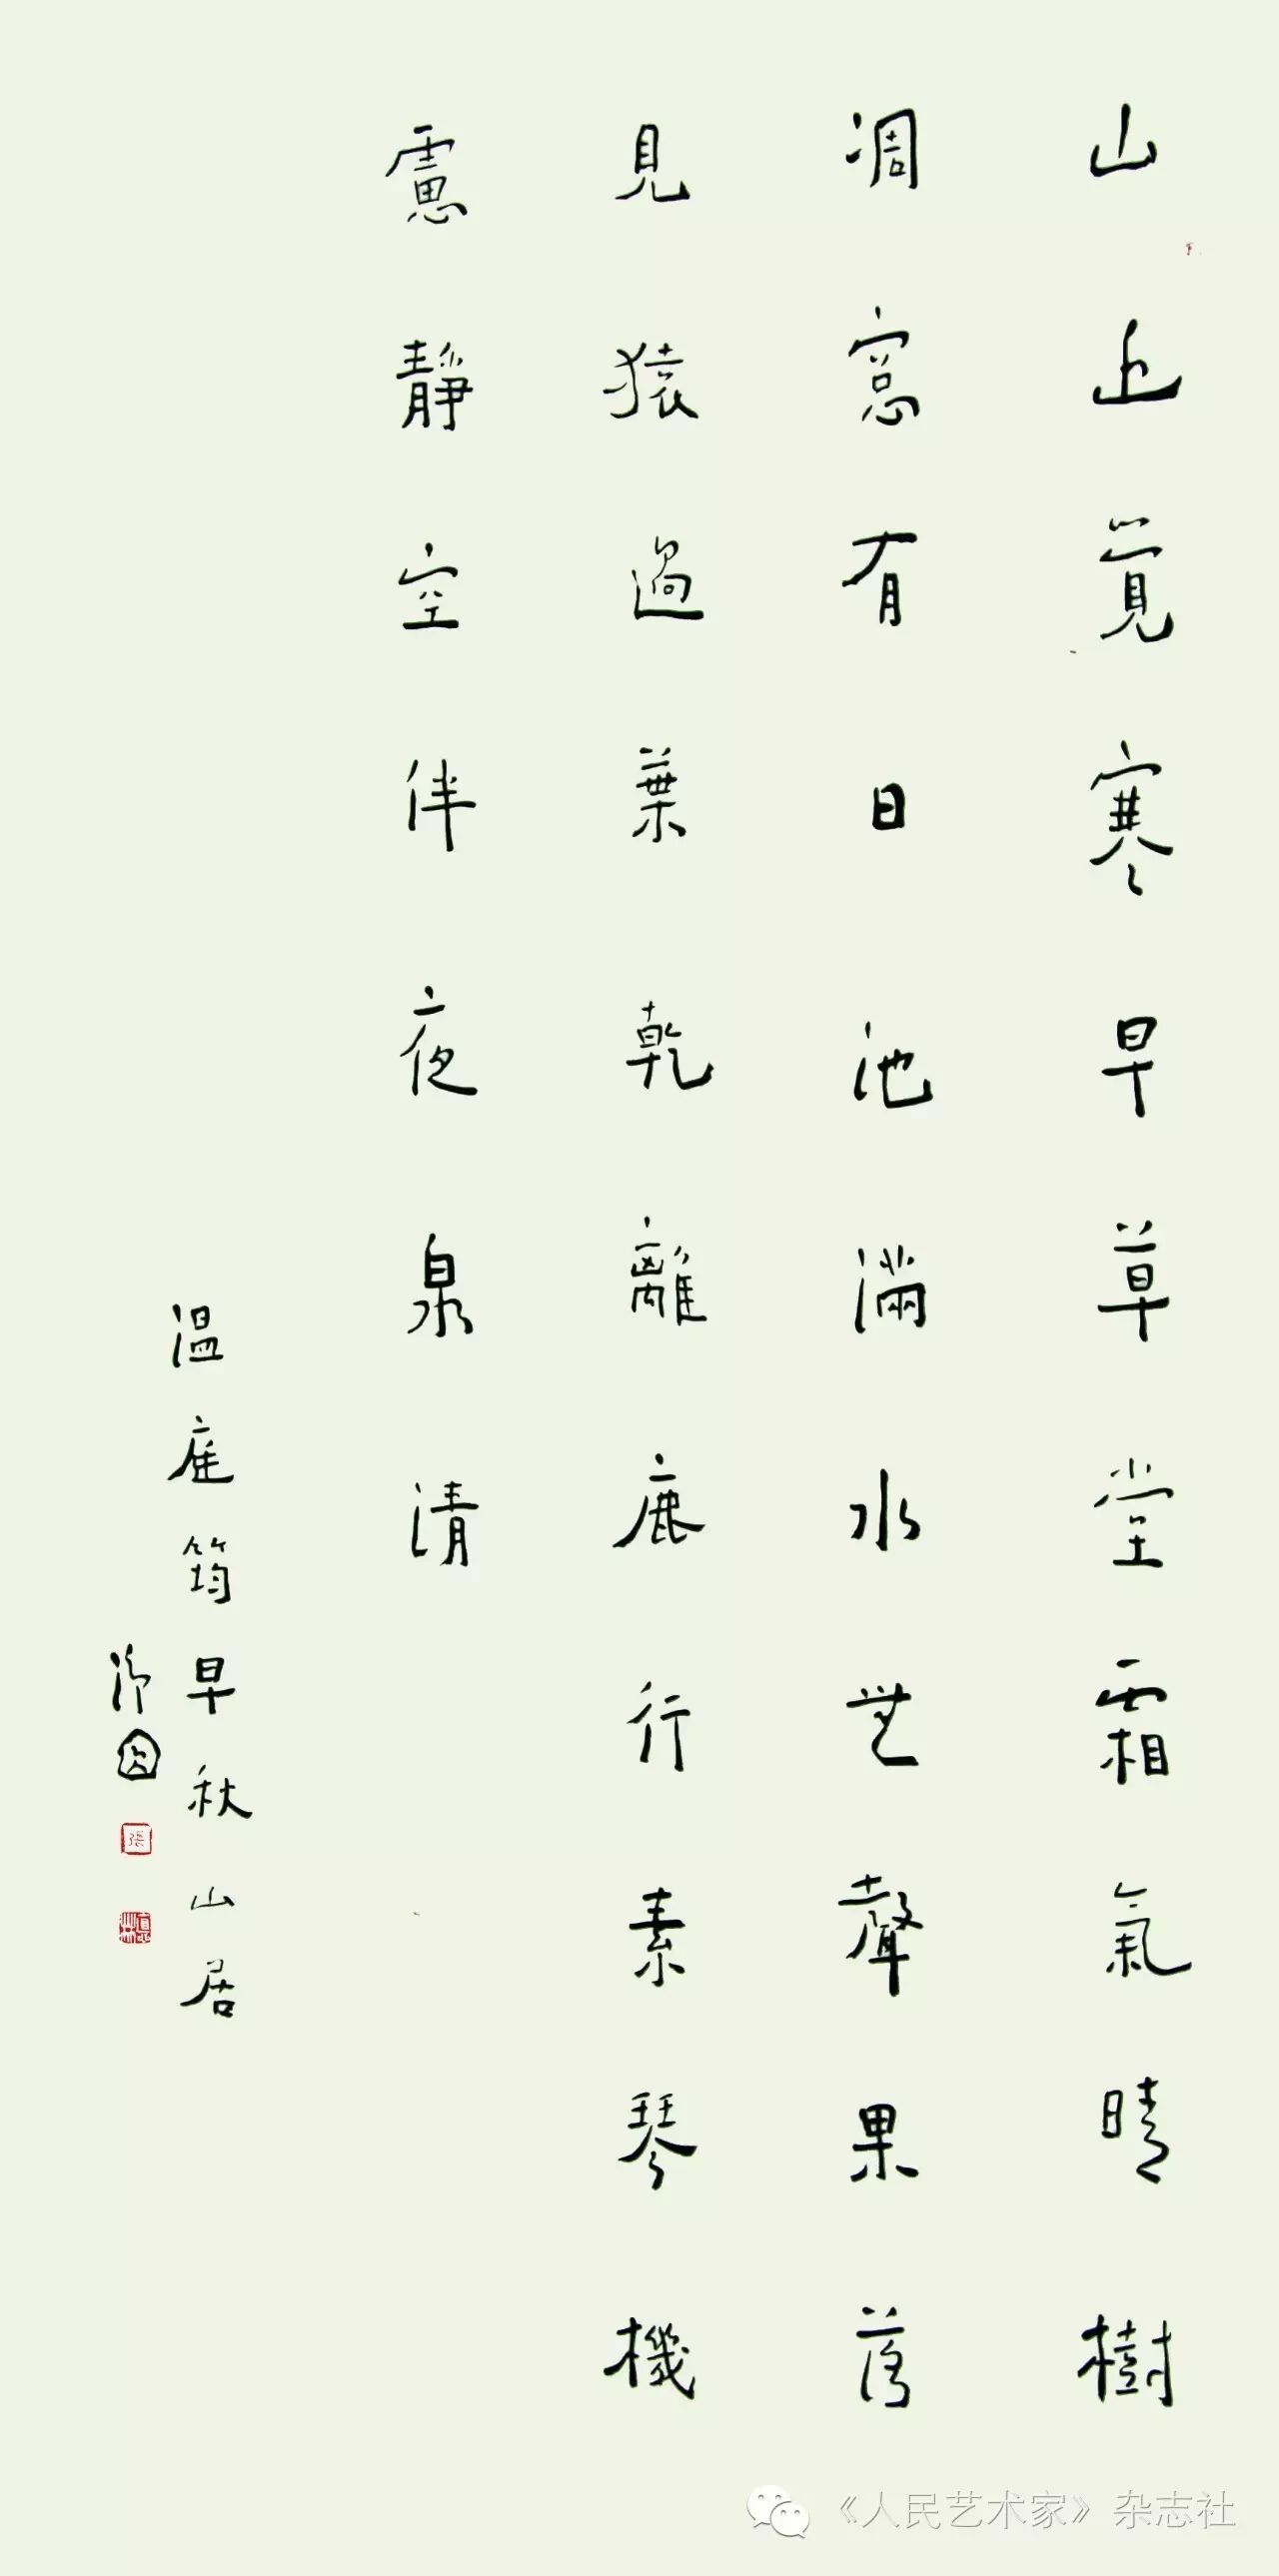 山近覺寒早草堂霜氣晴樹
凋窻有日池滿水無聲果落
見猿過葉乾離鹿行素琴機
慮靜空伴夜泉清
溫庭筠早秋山居
張
《人民艺术家》杂志社